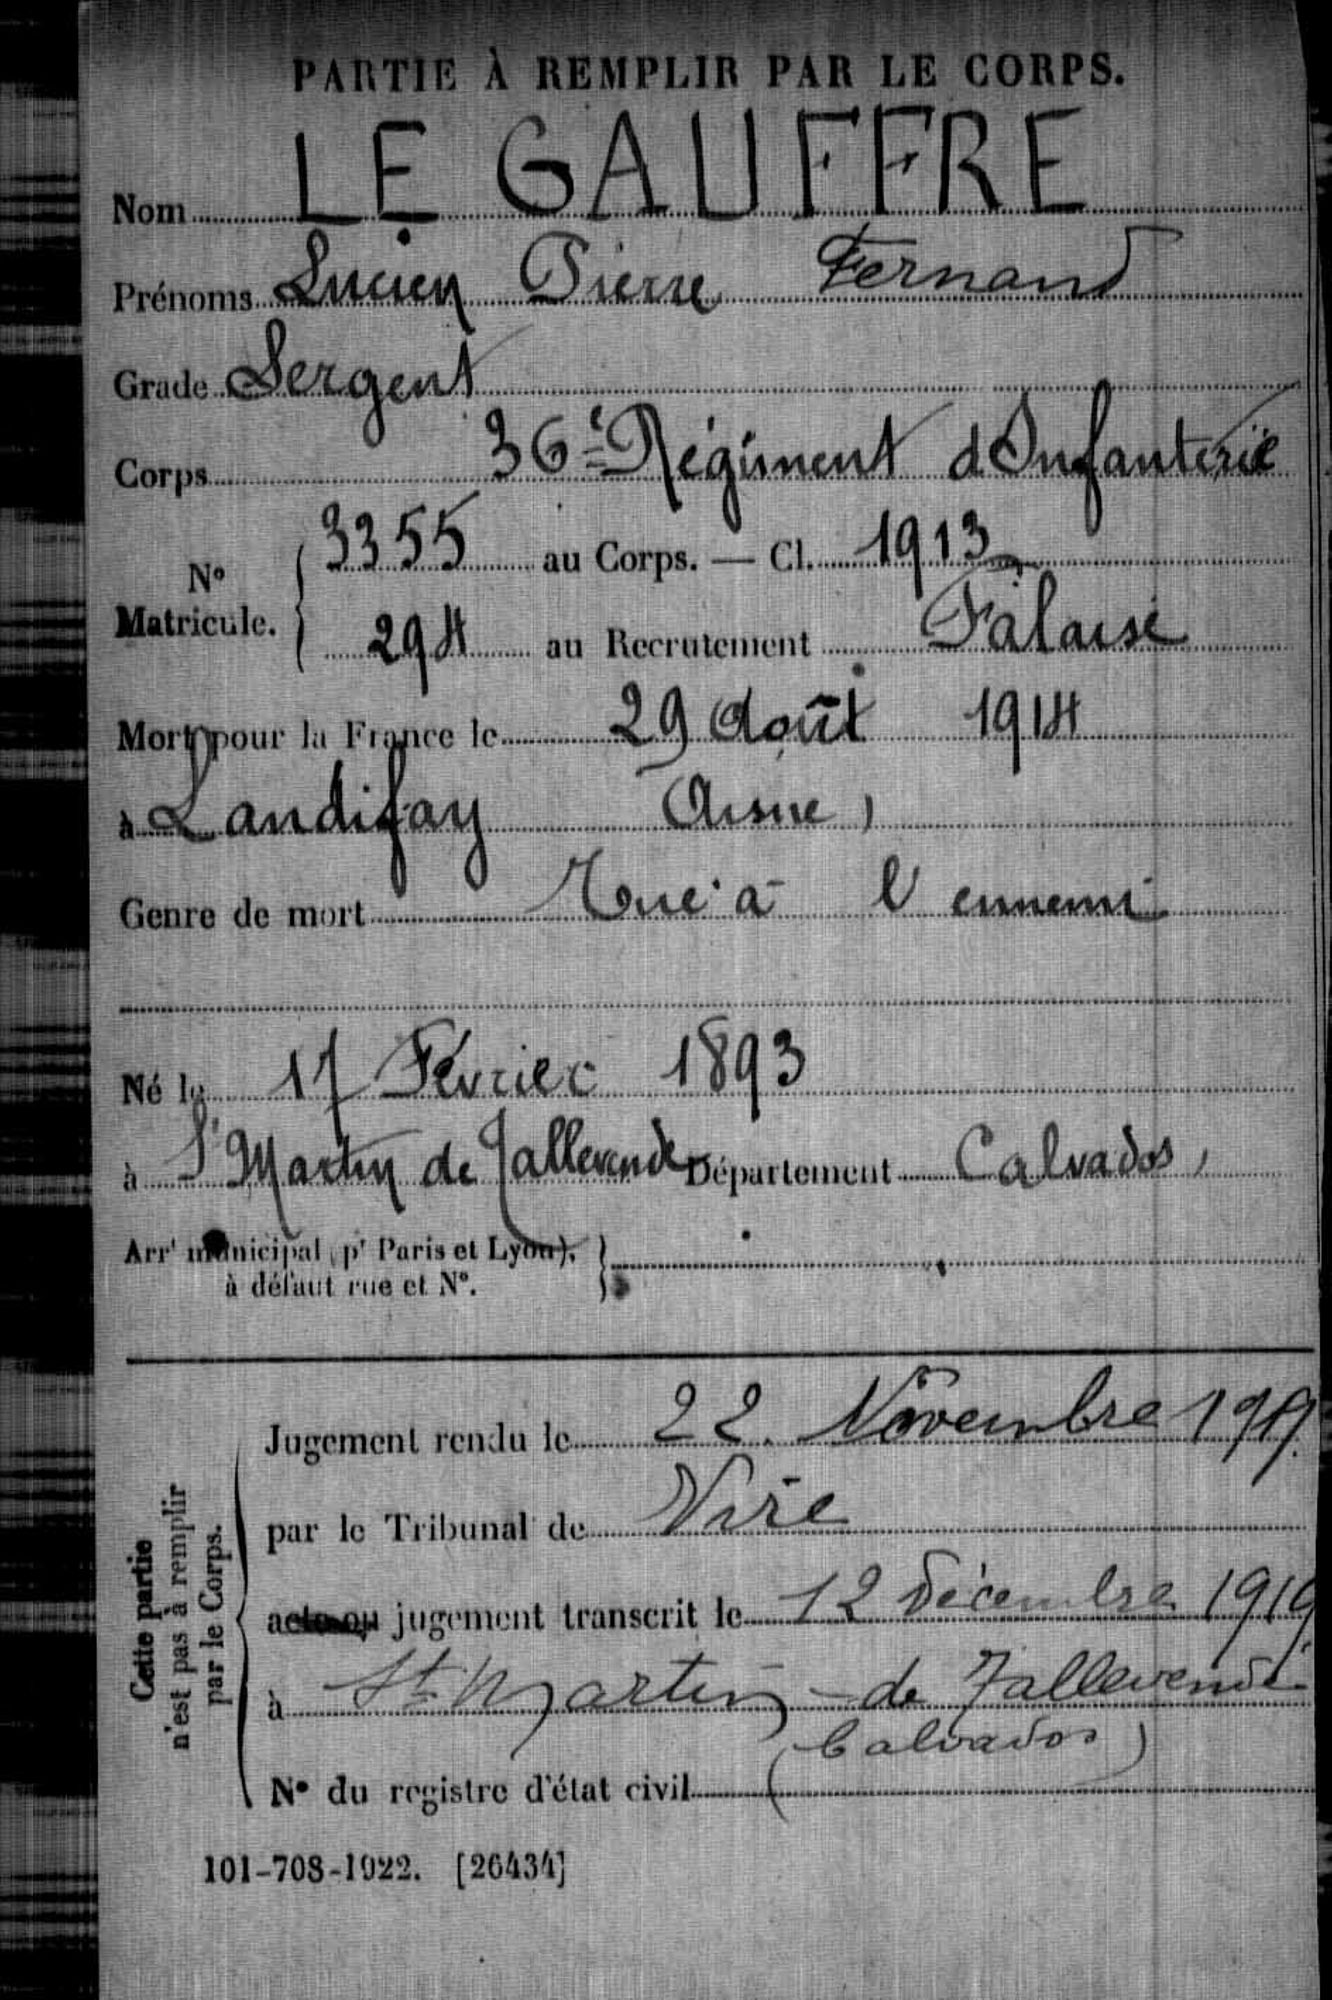 PARTIE À REMPLIR PAR LE CORPS.
Nom LE GAUFFRE
Prénoms Lucien Pierre Fernand
Grade Sergent
Corps 36è Régiment d'Infanterie
N° Matricule. { 3355 au Corps. — Cl. 1913
294 au Recrutement Falaise
Mort pour la France le 29 Août 1914
à Landifay (Aisne)
Genre de mort Tué à l'ennemi
Né le 17 Février 1893
à St Martin de Tallevende Département Calvados,
Arrt municipal (pr Paris et Lyon), }
à défaut rue et N°.
Cette partie
n'est pas à remplir
par le Corps.
Jugement rendu le 22 Novembre 1919.
par le Tribunal de Vire
acte ou jugement transcrit le 12 Décembre 1919
à St Martin de Tallevende
(Calvados)
N° du registre d'état civil
101-708-1922. [26434]